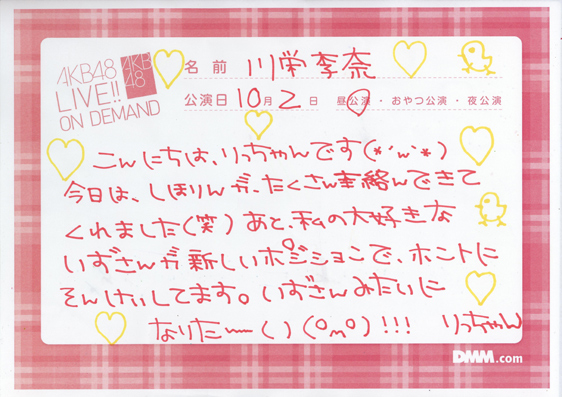 AKB48
LIVE!!
ON DEMAND
AKB
48
名前 川栄李奈
公演日 10月 2日 昼公演・おやつ公演・夜公演
こんにちは、りっちゃんです(*´ω`*)
今日は、しほりんが、たくさん絡んできて
くれました(笑)あと、私の大好きな
いずさんが新しいポジションで、ホントに
そんけいしてます。いずさんみたいに
なりたーーい)(°m°)!!! りっちゃん
DMM.com